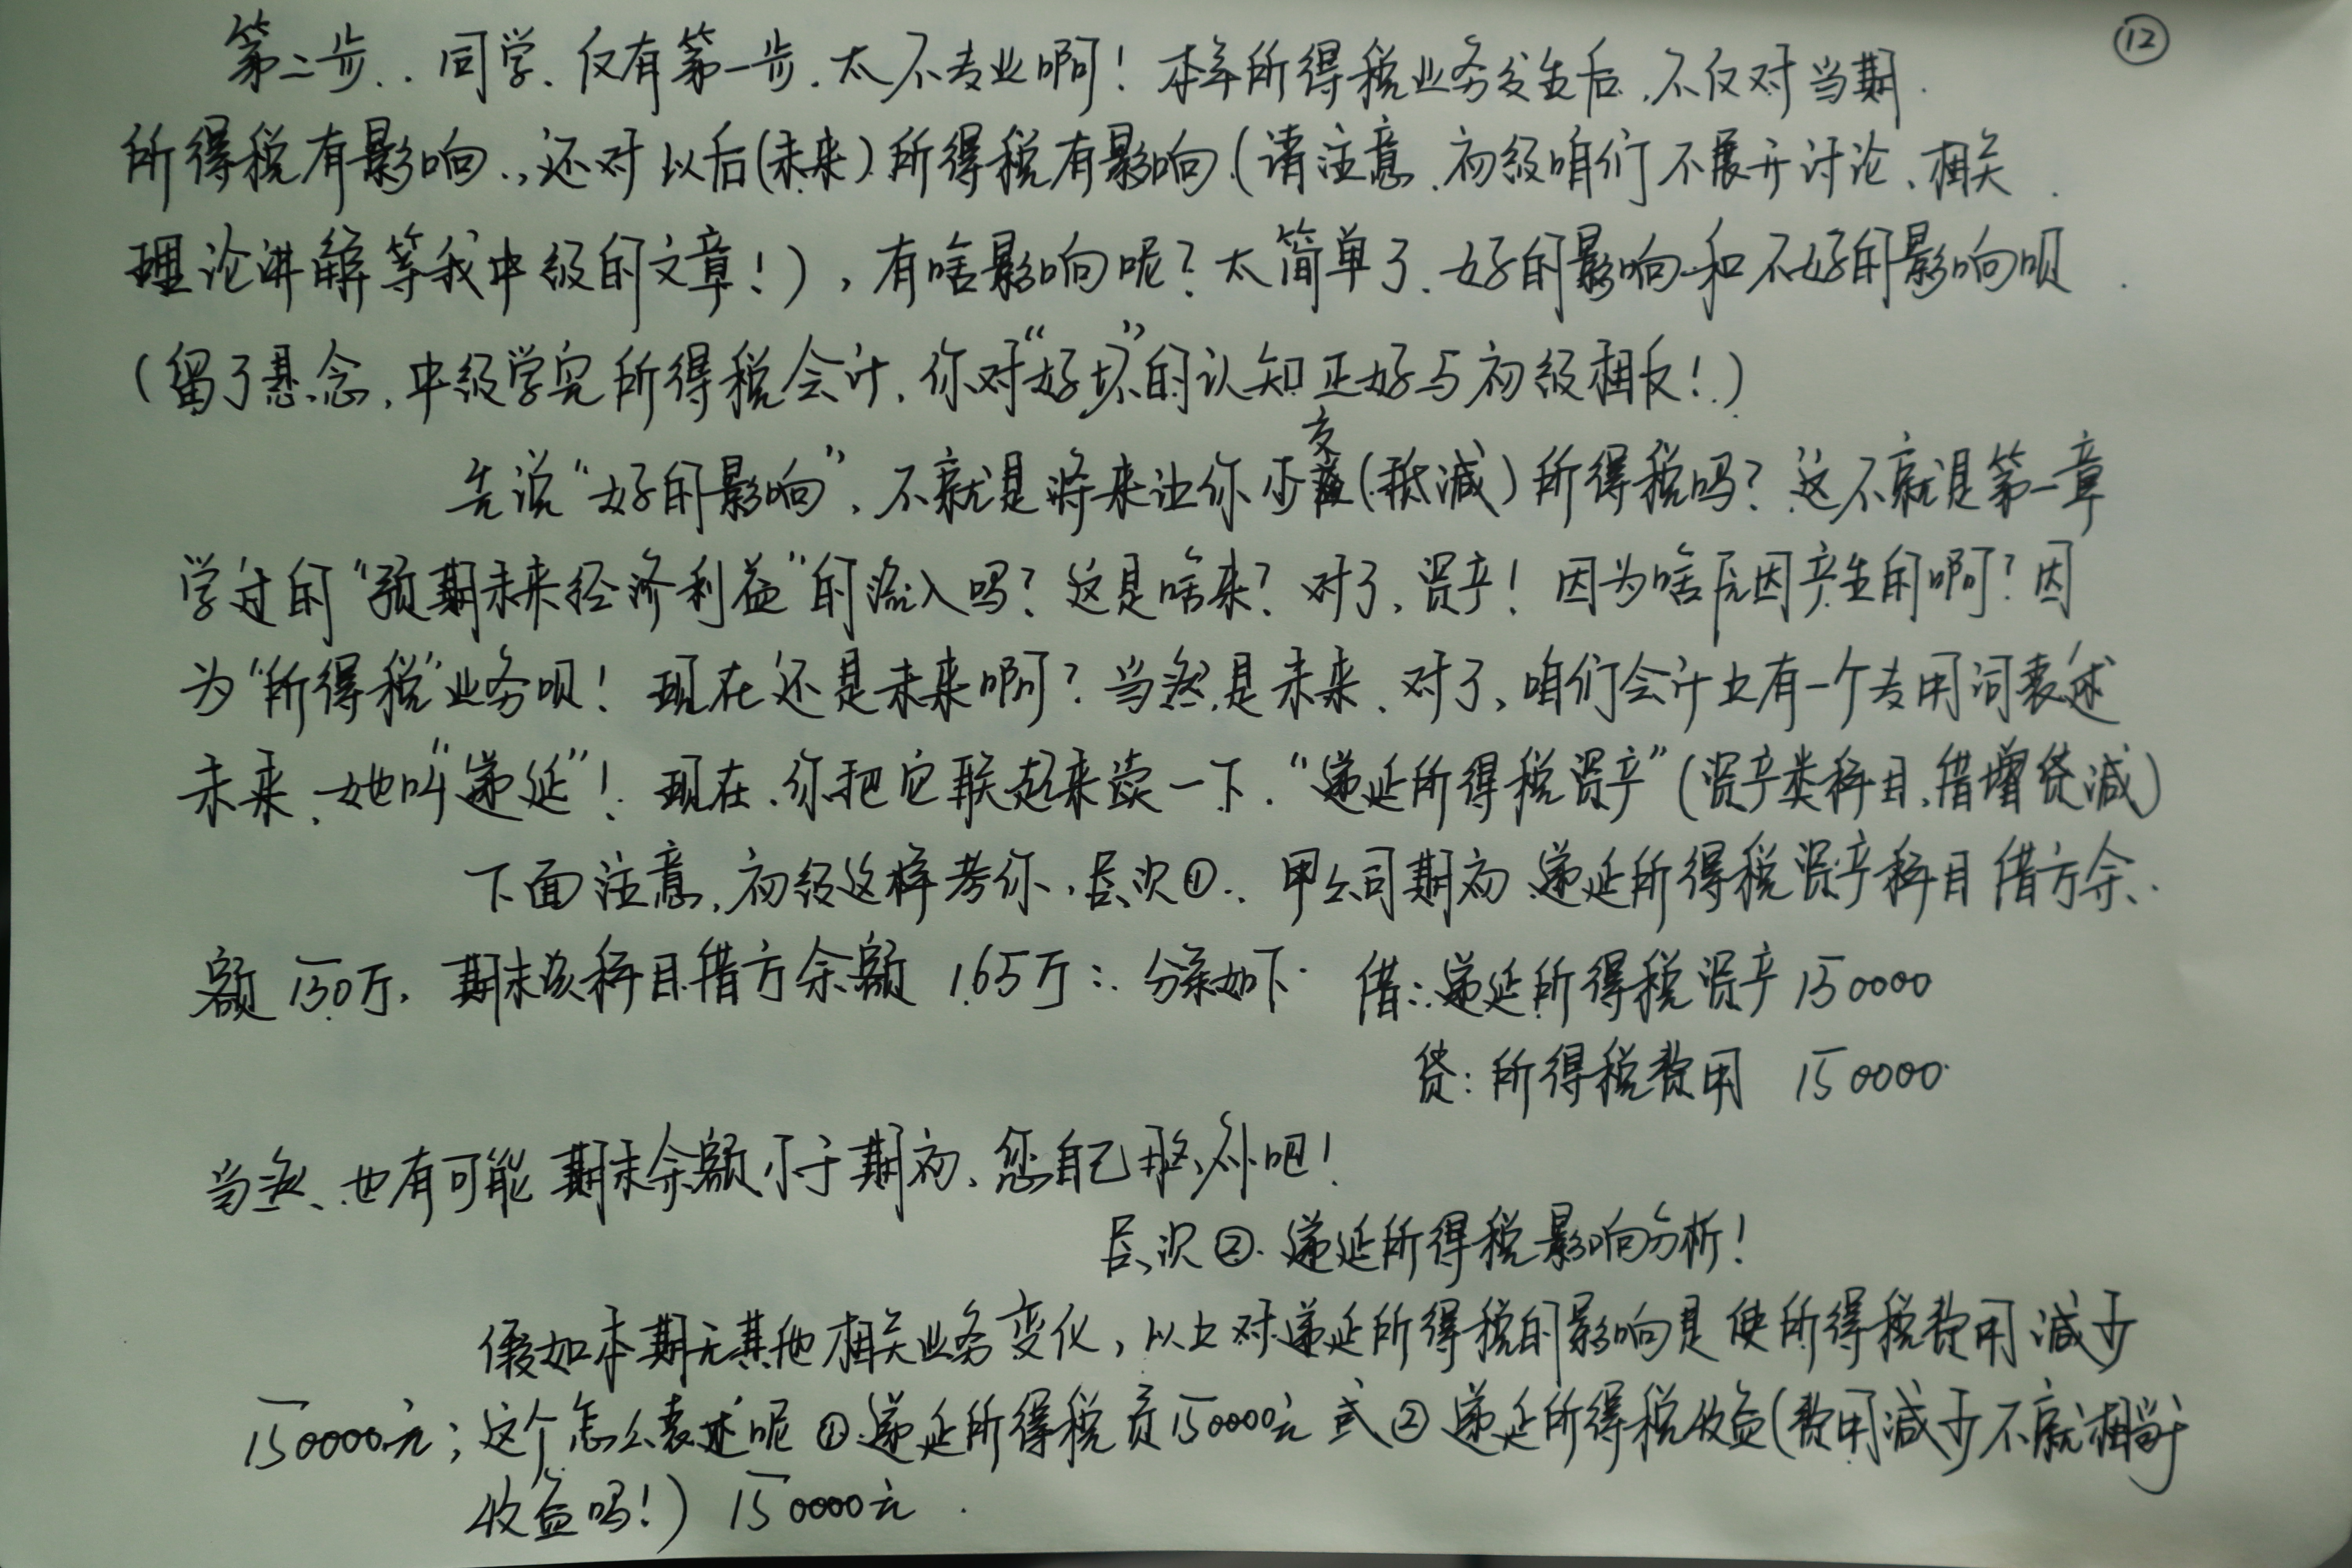 ⑫
第二步..同学、仅有第一步.太不专业啊！本年所得税业务发生后,不仅对当期.
所得税有影响.,还对以后(未来)所得税有影响(请注意.初级咱们不展开讨论、相关.
理论讲解等我中级的文章！),有啥影响呢？太简单了.好的影响和不好的影响呗.
(留了悬念,中级学完所得税会计,你对“好坏”的认知正好与初级相反！)
先说“好的影响”,不就是将来让你少交(抵减)所得税吗？这不就是第一章
学过的“预期未来经济利益”的流入吗？这是啥来？对了,资产！因为啥原因产生的啊？因
为“所得税”业务呗！现在还是未来啊？当然是未来、对了,咱们会计上有一个专用词表述
未来、她叫“递延”！现在.你把它联起来读一下.“递延所得税资产”(资产类科目,借增贷减)
下面注意,初级这样考你,层次①.甲公司期初递延所得税资产科目借方余
额150万,期末该科目借方余额165万:.分录如下.借:递延所得税资产150000
贷:所得税费用 150000
当然、也有可能期末余额小于期初、您自己脑补吧！
层次②.递延所得税影响分析！
假如本期无其他相关业务变化,以上对递延所得税的影响是使所得税费用减少
150000元;这个怎么表述呢①递延所得税负150000元或②递延所得税收益(费用减少不就相当于
收益吗！)150000元.